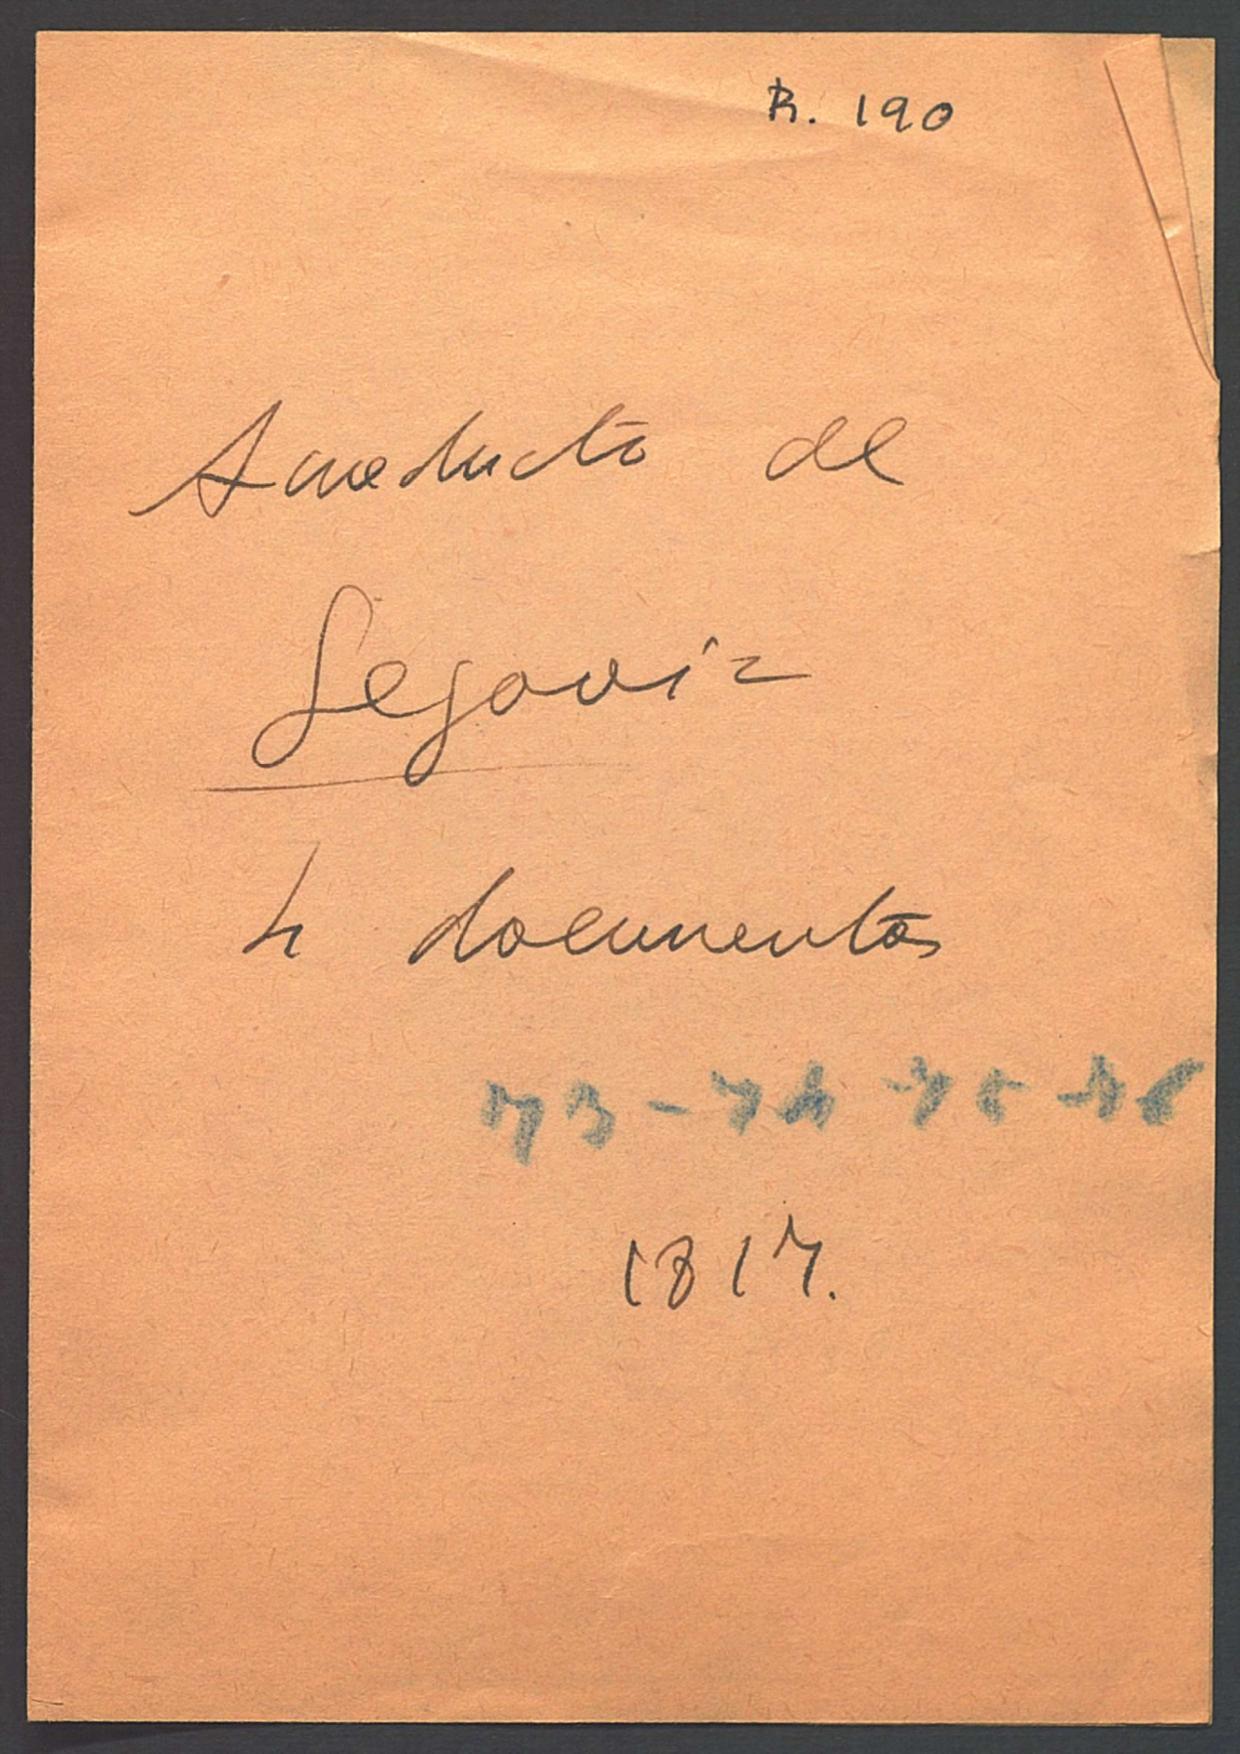 R. 190
Acueducto de
Segovia
4 documentos
73-74-75-76
1817.